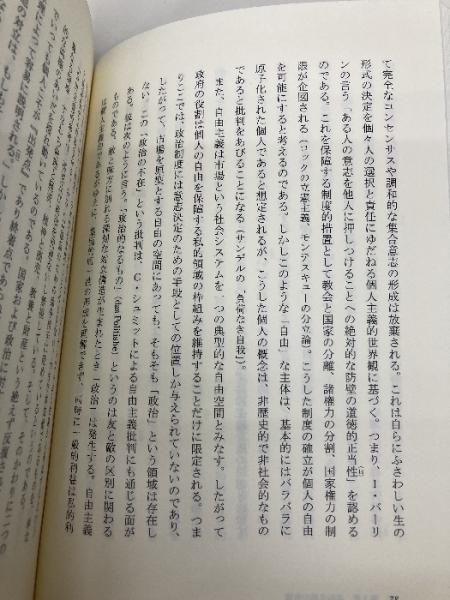 て完全なコンセンサスや調和的な集合意志の形成は放棄される。これは自らにふさわしい生の
形式の決定を個々人の選択と責任にゆだねる個人主義的世界観に基づく。つまり、I・バーリ
ンの言う「ある人の意志を他人に押しつけることへの絶対的な防壁の道徳的正当性」を認める
のである。これを保障する制度的措置として教会と国家の分離、諸権力の分割、国家権力の制
限が企図される(ロックの立憲主義、モンテスキューの分立論)。こうした制度の確立が個人の自由
を可能にすると考えるのである。しかしこのような「自由」な主体は、基本的にはバラバラに
原子化された個人であると想定されるが、こうした個人の概念は、非歴史的で非社会的なもの
であると批判をあびることになる(サンデルの「負荷なき自我」)。
また、自由主義は市場という社会システムを一つの典型的な自由空間とみなす。したがって
政府の役割は個人の自由を保障する私的領域の枠組みを維持することだけに限定される。つま
りここでは、政治制度には意志決定のための手段としての位置しか与えられていないのであり、
したがって、市場を原型とする自由の空間にあっても、そもそも「政治」という領域は存在し
ない。この「政治の不在」という批判は、C・シュミットによる自由主義批判にも通じる面が
ある。彼は次のように言う。「政治的なるもの」(das Politische)というのは友と敵の区別に関わる
ものである。敵と味方に別れる深刻な対立構造が生まれたとき「政治」は発生する。自由主義